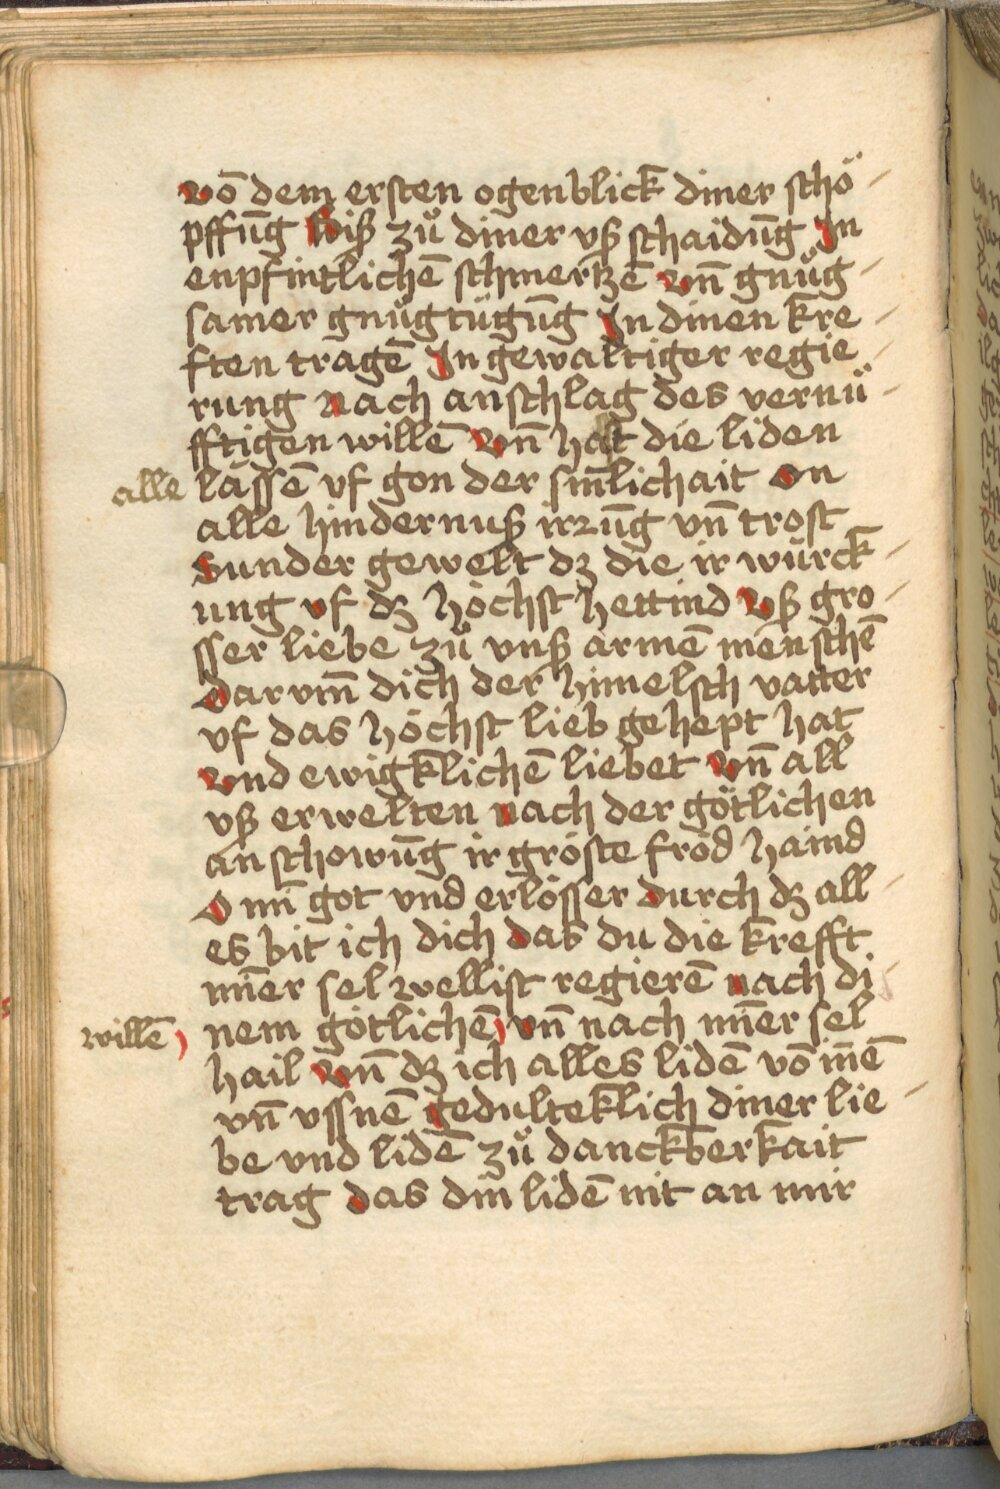 vō dem ersten ogenblick diner schö-
pffūg bis zů diner vß schaidūg In
enpfintlichē schmertzē vn̄ gnůg-
samer gnůgtůgūg In dinen kre-
ften tragē In gewaltiger regie-
rung nach anschlag des vernü-
fftigen willē vn̄ hat die liden
alle lässē vf gon der sin̄lichait on
alle hindernuß irrūg vnn̄ trost
Sunder gewelt dz die ir würck-
ung vf dz höchst hettind vß gro-
sser liebe zů vnß armē menschē
Darvm̄ dich der himelsch vatter
vf das höchst lieb gehept hat
vnd ewigklichē liebet vnn̄ all
vß erwelten nach der götlichen
anschowūg ir gröste fröd haind
O min̄ got vnd erlösser durch dz all-
es bit ich dich das du die krefft
min̄er sel wellist regierē nach di
nem götlichē) vnn̄ nach min̄er sel
willē)
hail vnn̄ dz ich alles lidē vō in̄ē
vnn̄ vssnē gedulteklich diner lie-
be vnd lidē zů danckberkait
trag das din lidē nit an mir